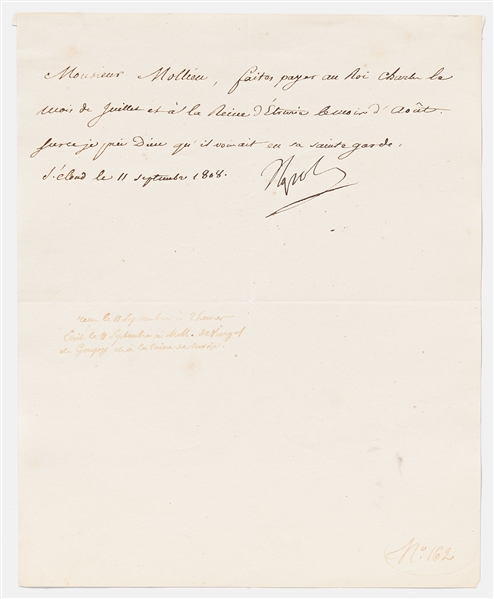 Monsieur Mollien, faites payer au Roi Charles le
mois de Juillet et à la Reine d'Étrurie le mois d'Août.
Surce je prie Dieu qu'il vous ait en sa sainte garde.
S.t Cloud le 11 septembre 1808.
Napol
le 11 Septembre à
Ecrit le 11 Septembre à
de la Reine
N.o 162